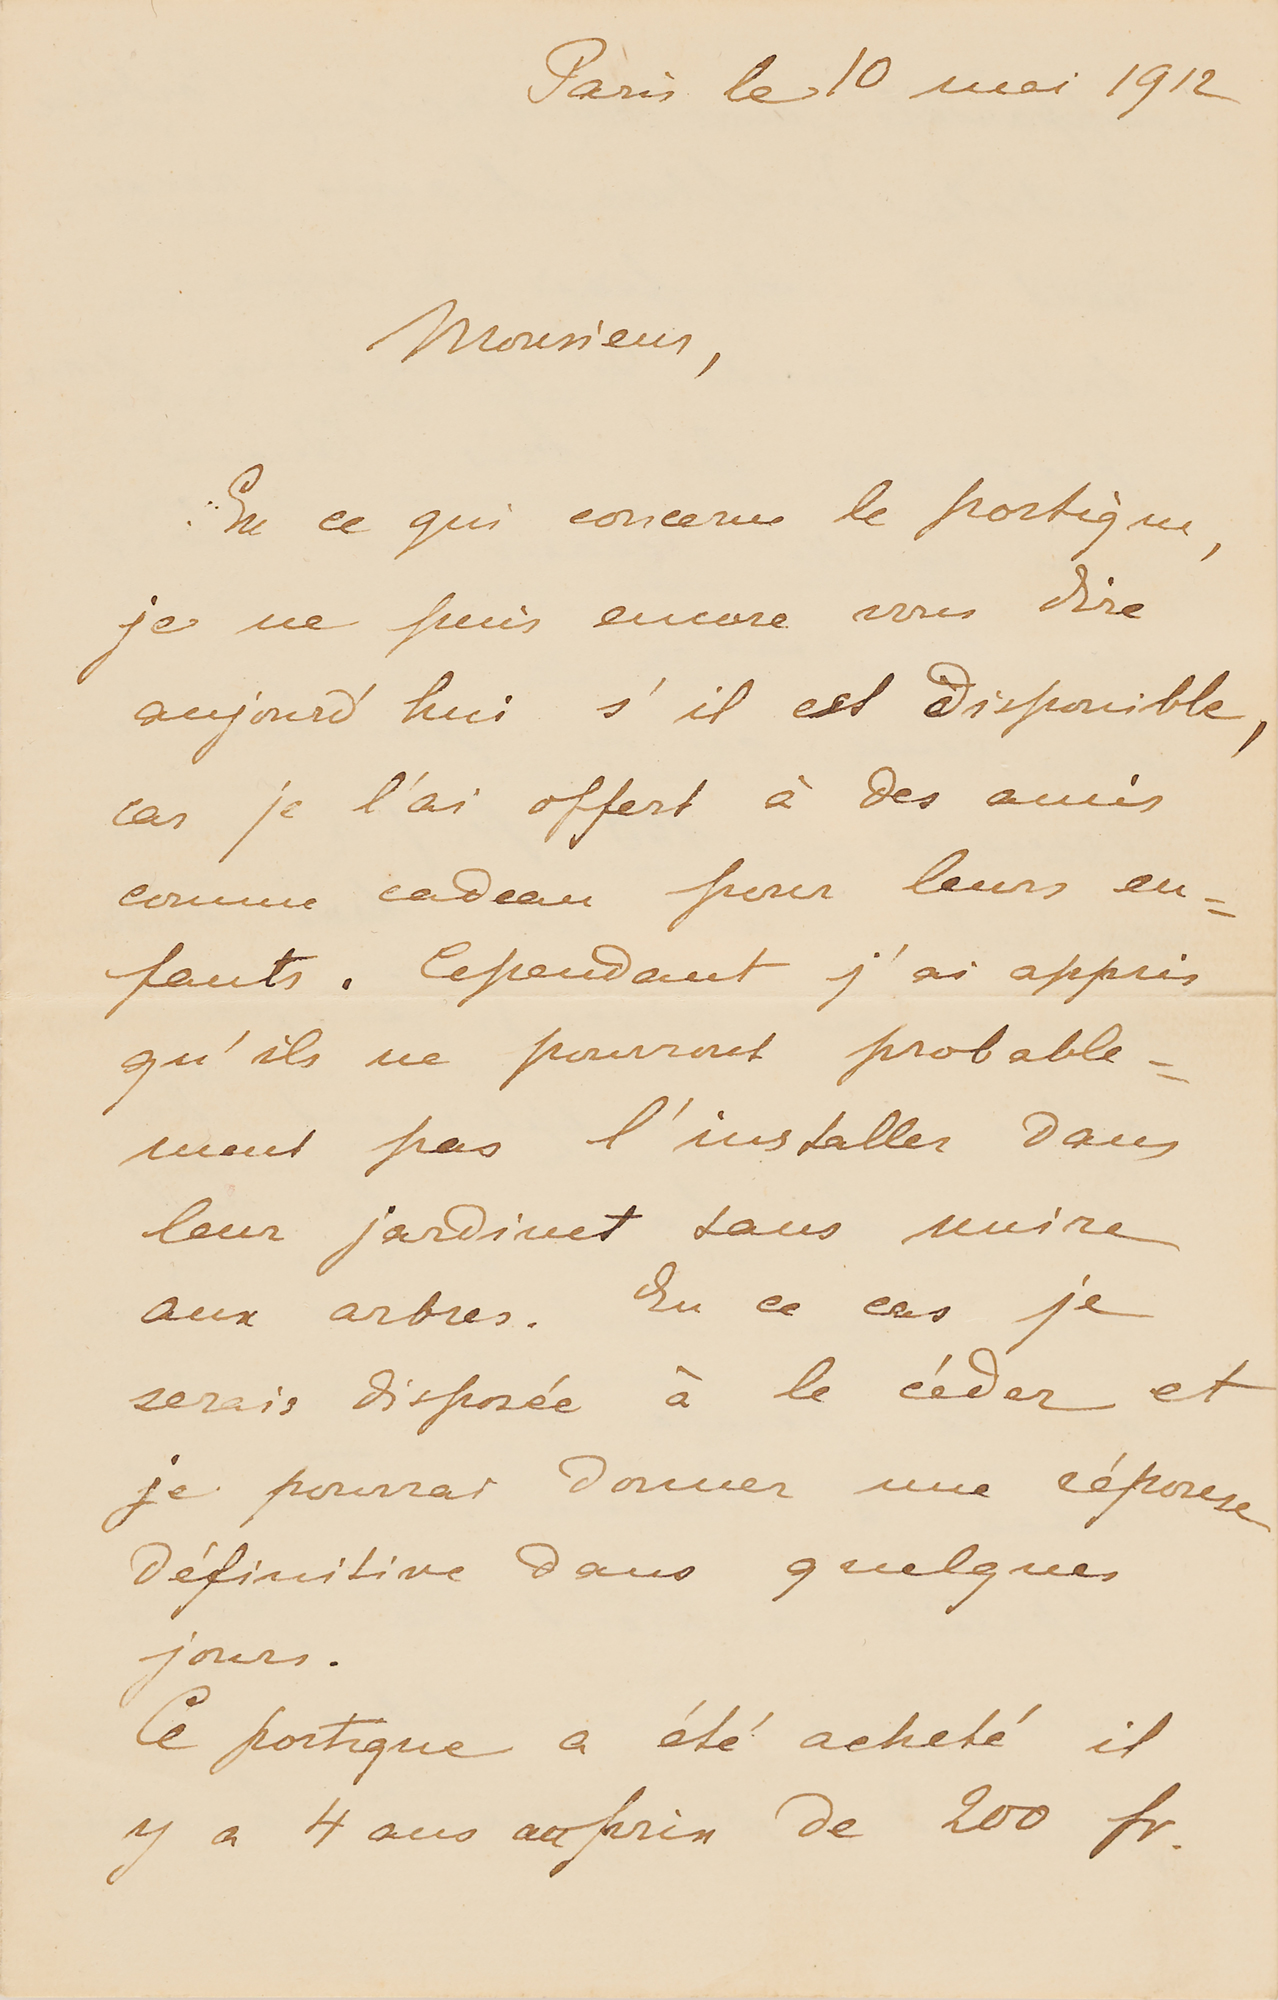 Paris le 10 mai 1912
Monsieur,
En ce qui concerne le portique,
je ne puis encore vous dire
aujourd'hui s'il est disponible,
car je l'ai offert à des amis
comme cadeau pour leurs en=
fants. Cependant j'ai appris
qu'ils ne pourront probable=
ment pas l'installer dans
leur jardinet sans nuire
aux arbres. En ce cas je
serais disposée à le céder et
je pourrai donner une réponse
définitive dans quelques
jours.
Ce portique a été acheté il
y a 4 ans au prix de 200 fr.